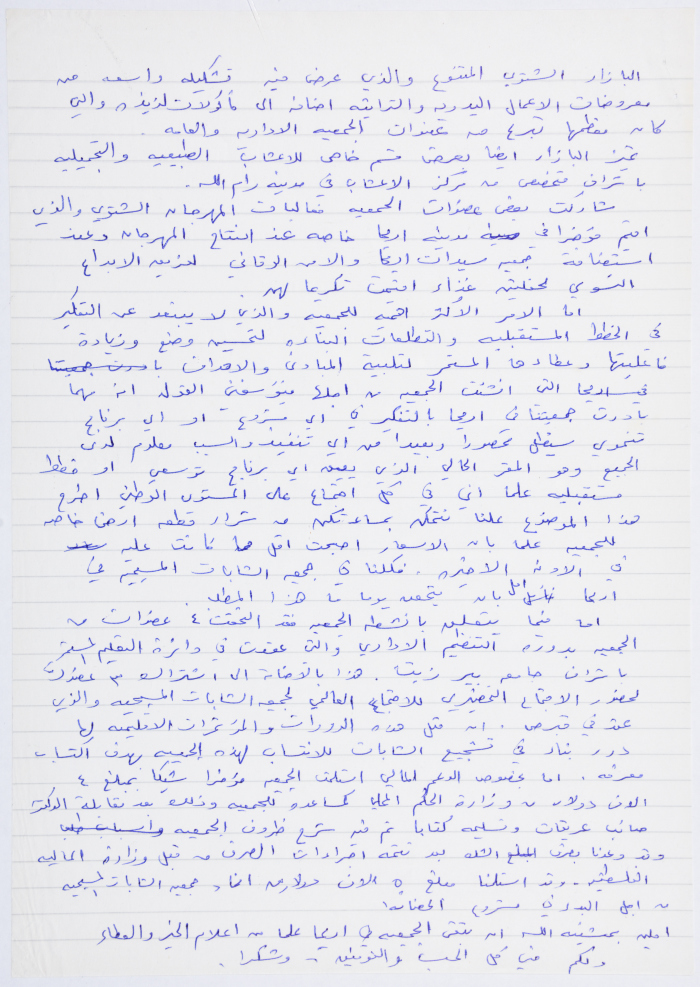 البازار الشتوي المتنوع والذي عرض فيه تشكيله واسعه من
معروضات الاعمال اليدويه والتراثيه اضافه الى مأكولات لذيذه والتي
كان معظمها تبرع من عضوات الجمعيه الاداريه والعامه .
تميز البازار ايضا بعرض قسم خاص للاعشاب الطبيعيه والتجميليه
باشراف مختص من مركز الاعشاب في مدينه رام الله .
شاركت بعض عضوات الجمعيه فعاليات المهرجان الشتوي والذي
اقيم مؤخرا في مدينه اريحا خاصه عند افتتاح المهرجان وعند
استضافة جمعيه سيدات اريحا والامن الوقائي لفريق الابداع
النسوي لحفلتين غذاء اقيمت تكريما لهن .
اما الامر الأكثر اهميه للجمعيه والذي لا يبتعد عن التفكير
في الخطط المستقبليه والتطلعات البناءه لتحسين وضع وزيادة
فاعليتها وعطاءها المستمر لتلبية المبادئ والاهداف
التي انشئت الجمعيه من اجلها فيؤسفني القول انه مهما
بادرت جمعيتنا في اريحا بالتفكير في اي مشروع او اي برنامج
تنموي سيظل محصورا وبعيدا عن اي تنفيذ والسبب معلوم لدى
الجميع وهو المقر الحالي الذي يعيق اي برنامج توسعي او خطط
مستقبليه علما اني في كل اجتماع على المستوى الوطني اطرح
هذا الموضوع علنا نتمكن بمساعدتكن من شراء قطعه ارض خاصه
للجمعيه علما بان الاسعار اصبحت اقل مما كانت عليه
في الاونه الاخيره . فكلنا في جمعيه الشابات المسيحيه في
اريحا امل بان يتحقق يوما ما هذا المطلب .
اما فيما يتعلق بانشطه الجمعيه فقد التحقت ٤ عضوات من
الجمعيه بدورة التنظيم الاداري والتي عقدت في دائرة التعليم المستمر
باشراف جامعه بير زيت . هذا بالاضافه الى اشتراك ٣ عضوات
لحضور الاجتماع التحضيري للاجتماع العالمي لجمعيه الشابات المسيحيه والذي
عقد في قبرص . ان مثل هذه الدورات والمؤتمرات الاقليميه لها
دور بناء في تشجيع الشابات للانتساب لهذه الجمعيه بهدف اكتساب
معرفه . اما بخصوص الدعم المالي استلمت الجمعيه مؤخرا شيكا بمبلغ ٤
الاف دولار من وزارة الحكم المحلي كمساعده للجمعيه وذلك بعد مقابلة الدكتور
صائب عريقات وتسليمه كتابا تم فيه شرح ظروف الجمعيه
وقد وعدنا بصرف المبلغ بعد تتمه اجراءات الصرف من قبل وزارة الماليه
الفلسطينيه . وقد استلمنا مبلغ ٥ الاف دولار من جمعيه الشابات المسيحيه
من اجل البدء في مشروع الحضانه
املين بمشيئه الله ان تبقى الجمعيه في اريحا علما من اعلام الخير والعطاء
ولكم مني كل الحب والتوفيق . وشكرا .